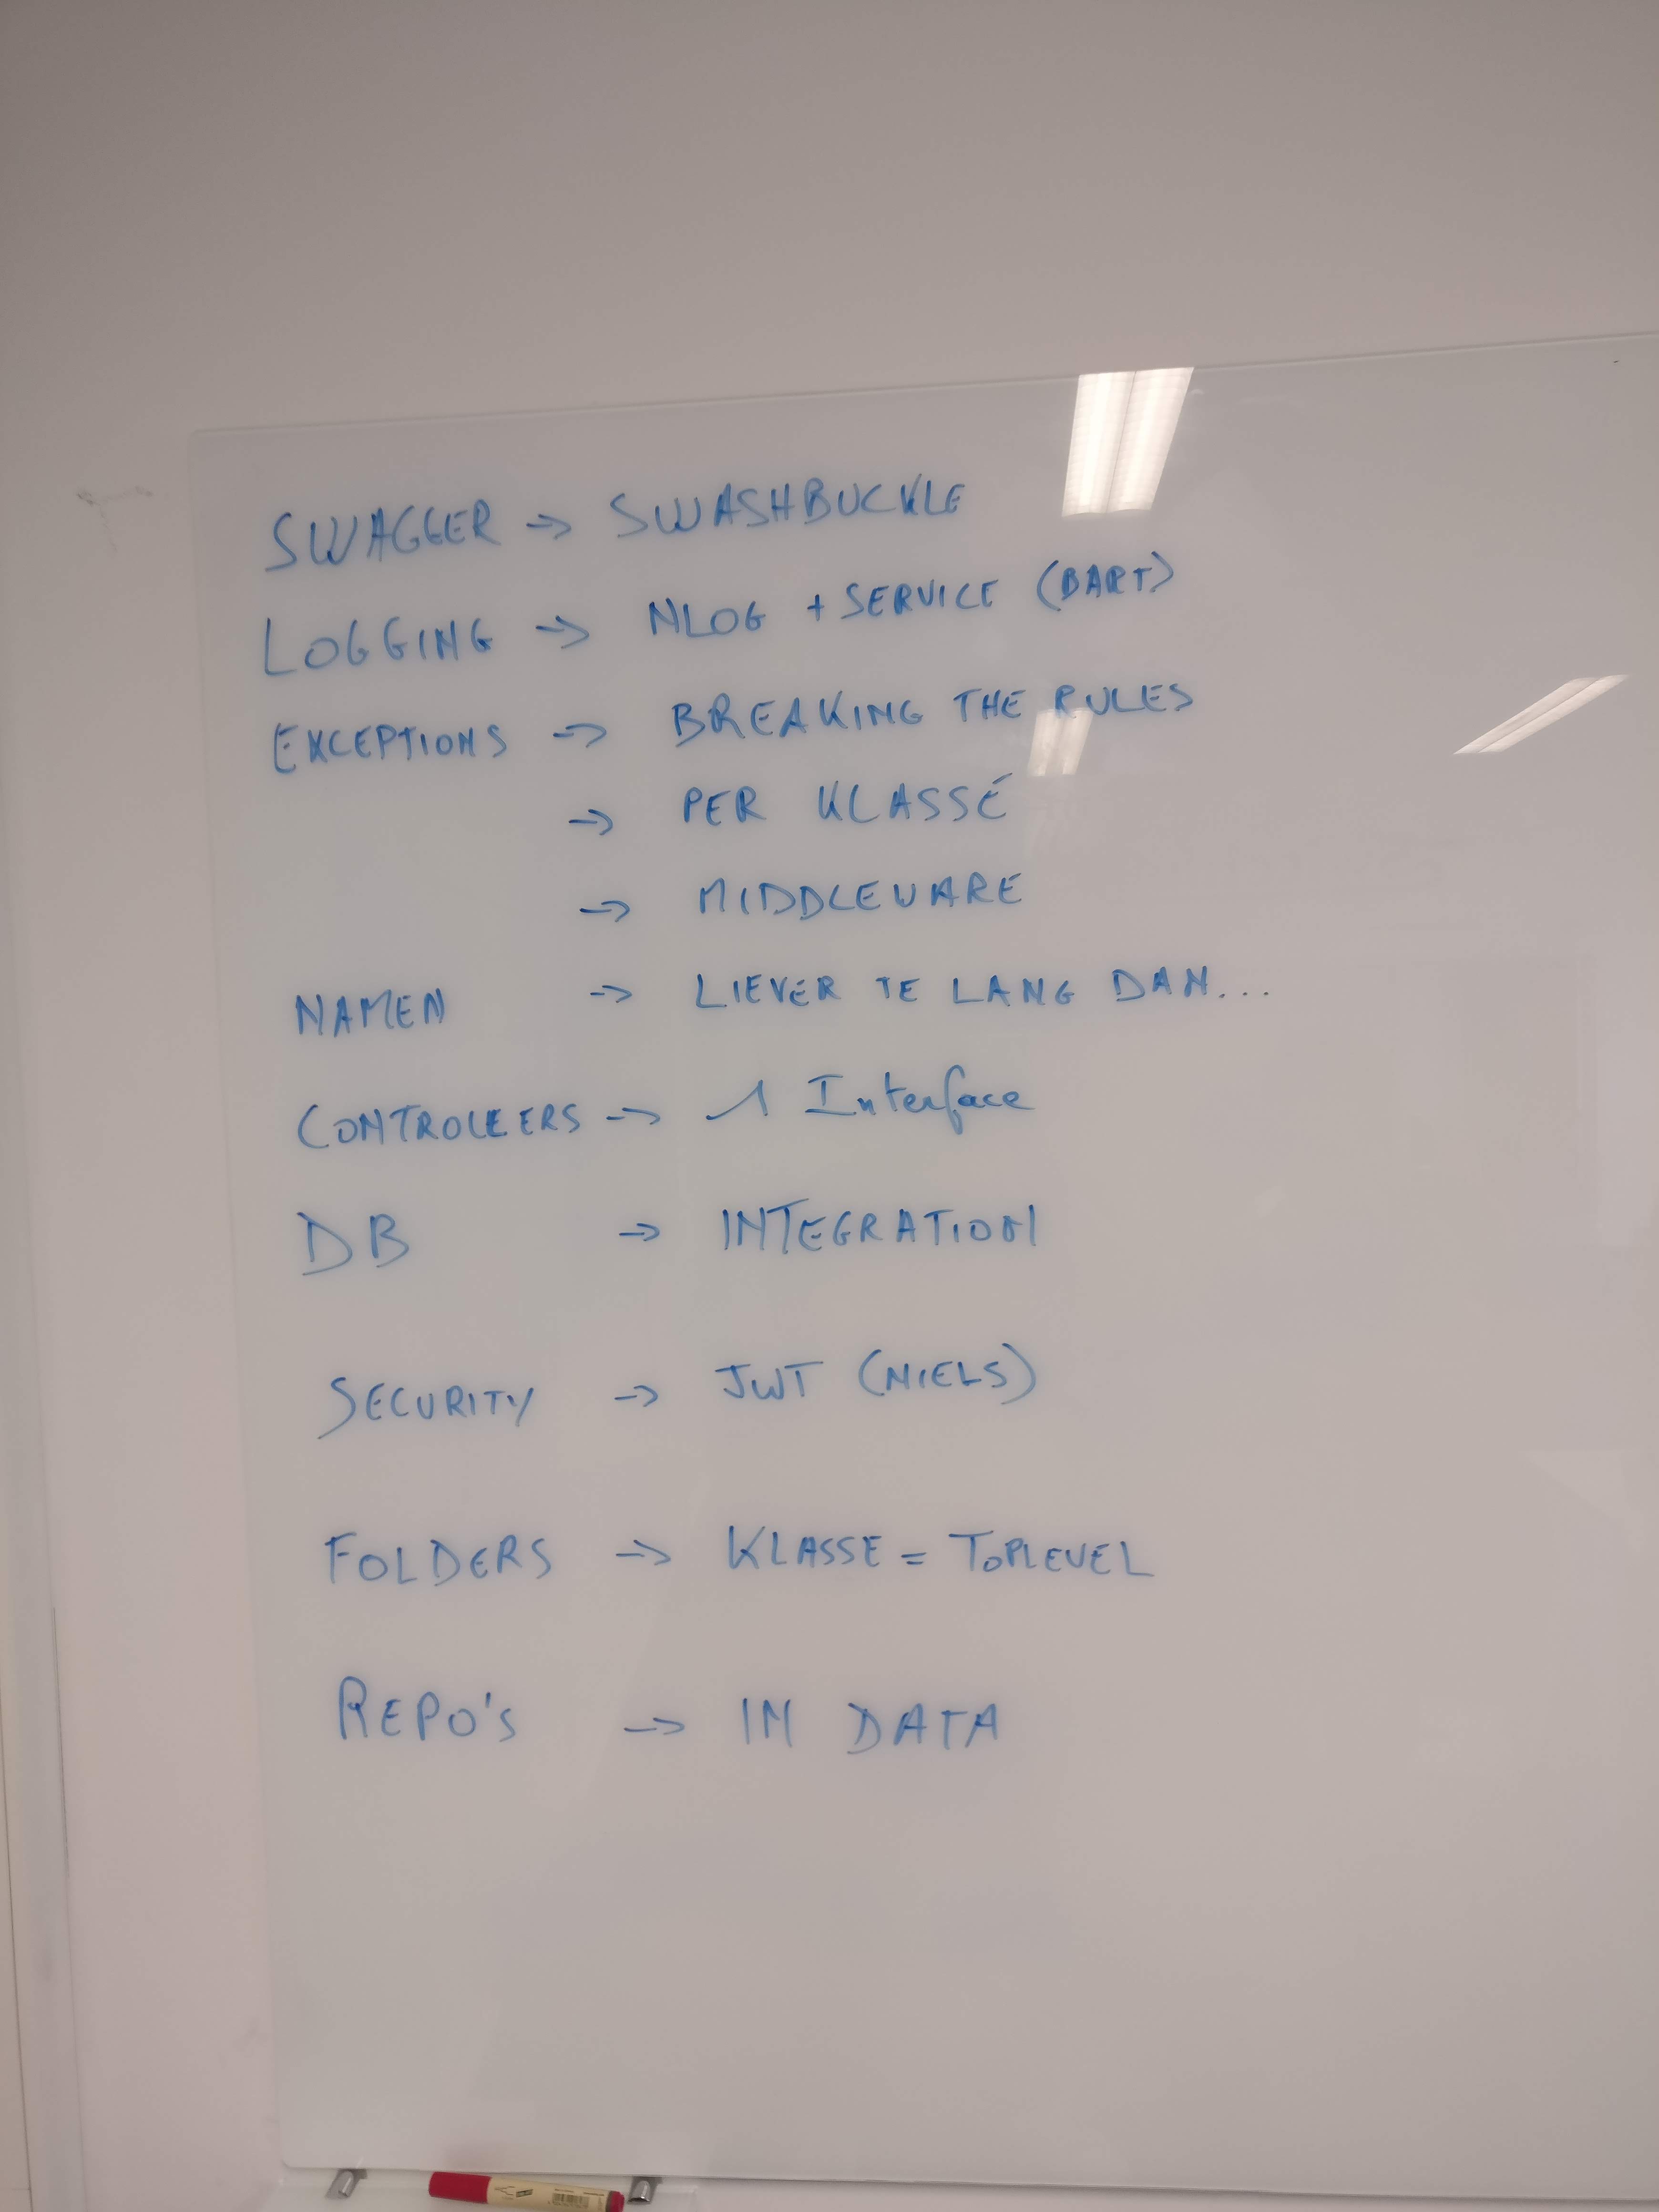 SWAGGER → SWASHBUCKLE
LOGGING → NLOG + SERVICE (BART)
EXCEPTIONS → BREAKING THE RULES
→ PER KLASSE
→ MIDDLEWARE
NAMEN → LIEVER TE LANG DAN...
CONTROLLERS → 1 Interface
DB → INTEGRATION
SECURITY → JWT (NIELS)
FOLDERS → KLASSE = TOPLEVEL
REPO'S → IN DATA